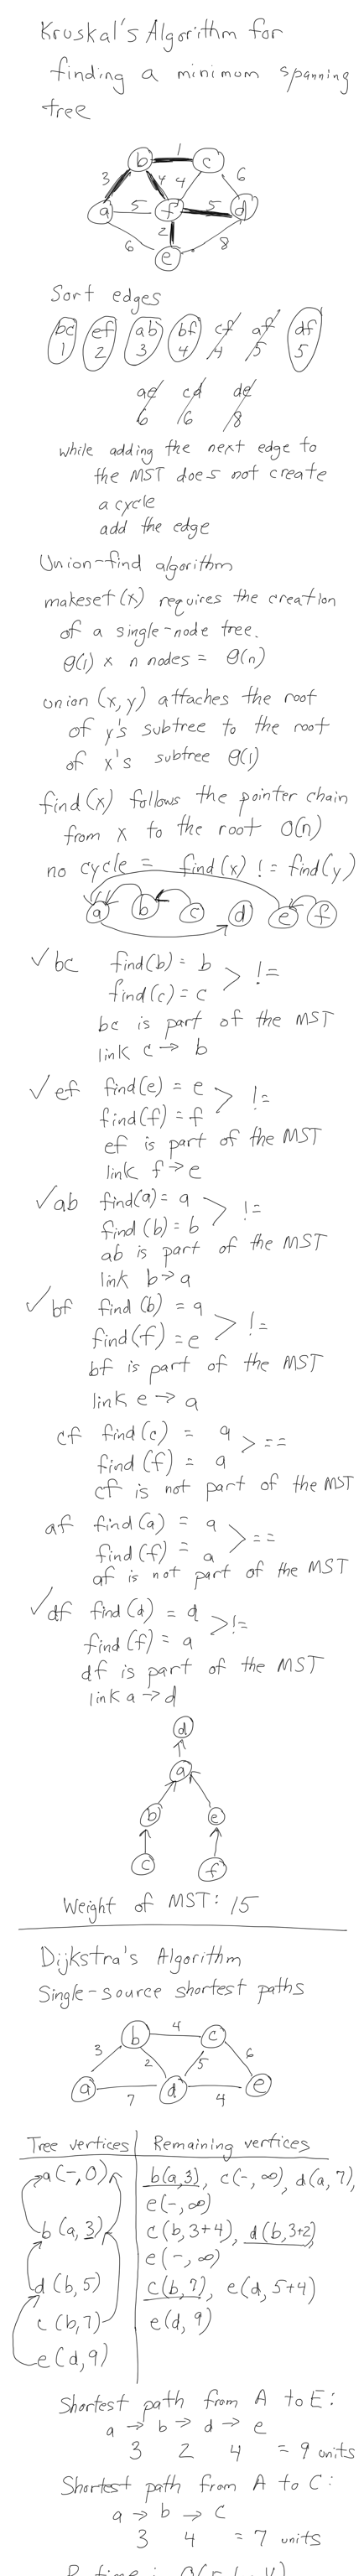 Kruskal's Algorithm for
finding a minimum spanning
tree
1
b c
3 4 4 6
a 5 f 5 d
2
6 e 8
Sort edges
bc ef ab bf cf af df
1 2 3 4 4 5 5
ae cd de
6 6 8
while adding the next edge to
the MST does not create
a cycle
add the edge
Union-find algorithm
makeset(x) requires the creation
of a single-node tree.
θ(1) x n nodes = θ(n)
union (x,y) attaches the root
of y's subtree to the root
of x's subtree θ(1)
find(x) follows the pointer chain
from x to the root O(n)
no cycle = find(x) != find(y)
a b c d e f
✓ bc find(b) = b
find(c) = c > !=
bc is part of the MST
link c → b
✓ ef find(e) = e
find(f) = f > !=
ef is part of the MST
link f → e
✓ ab find(a) = a
find(b) = b > !=
ab is part of the MST
link b → a
✓ bf find(b) = a
find(f) = e > !=
bf is part of the MST
link e → a
cf find(c) = a
find(f) = a > ==
cf is not part of the MST
af find(a) = a
find(f) = a > ==
af is not part of the MST
✓ df find(d) = d
find(f) = a > !=
df is part of the MST
link a → d
d
a
b e
c f
Weight of MST: 15
Dijkstra's Algorithm
Single-source shortest paths
b 4 c
3 2 5 6
a 7 d 4 e
Tree vertices Remaining vertices
a(-,0) b(a,3), c(-,∞), d(a,7),
e(-,∞)
b(a,3) c(b,3+4), d(b,3+2),
e(-,∞)
d(b,5) c(b,7), e(d,5+4)
c(b,7) e(d,9)
e(d,9)
Shortest path from A to E:
a → b → d → e
3 2 4 = 9 units
Shortest path from A to C:
a → b → c
3 4 = 7 units